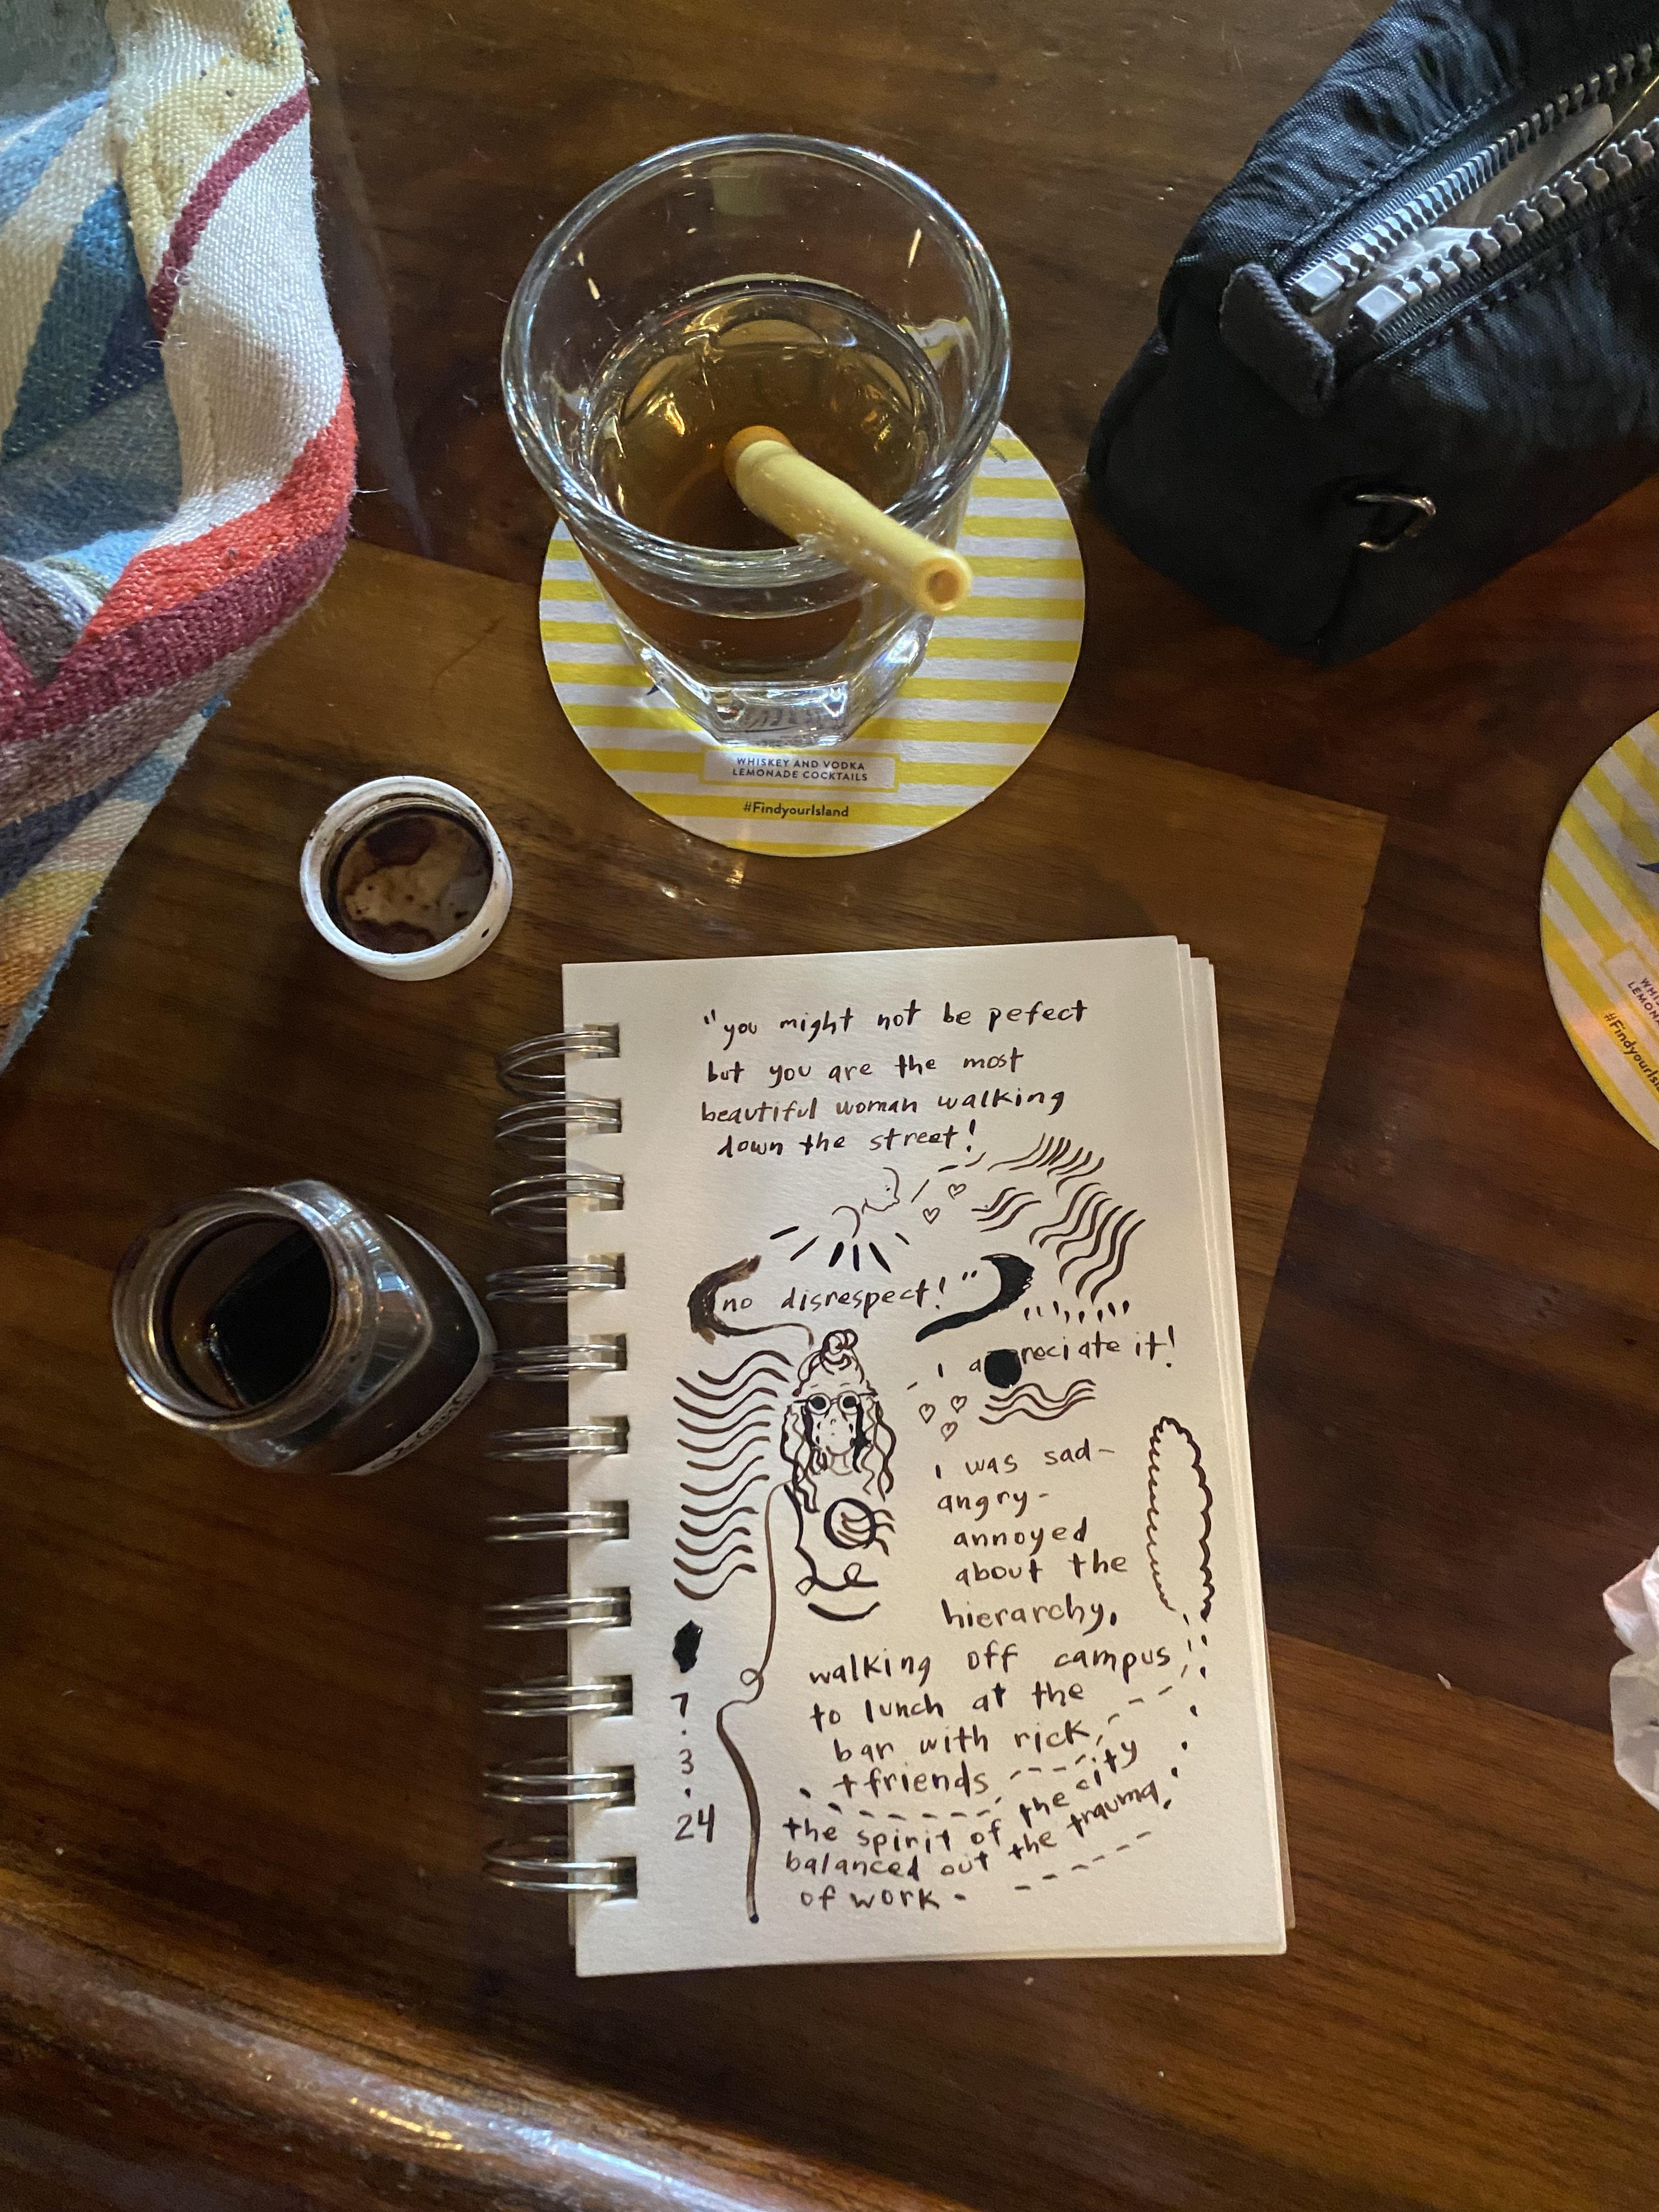 WHISKEY AND VODKA
LEMONADE COCKTAILS
#FindyourIsland
#FindyourIsl
"you might not be pefect
but you are the most
beautiful woman walking
down the street!
no disrespect!"
i a reciate it!
i was sad-
angry-
annoyed
about the
hierarchy,
walking off campus
to lunch at the
bar with rick,
+ friends
the spirit of the city
balanced out the trauma
of work -
7
.
3
.
24